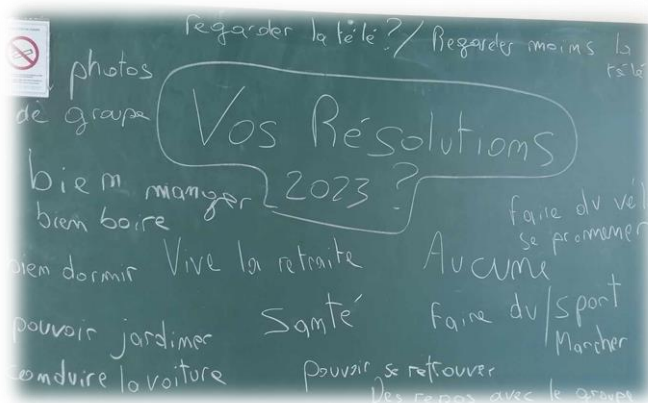 regarder la télé ? / Regarder moins la
télé
photos
de groupe
Vos Résolutions
2023 ?
bien manger
bien boire
faire du vél
se promener
bien dormir
Vive la retraite
Aucune
pouvoir jardiner
Santé
faire du / sport
Marcher
conduire la voiture
pouvoir se retrouver
Des repas avec le groupe